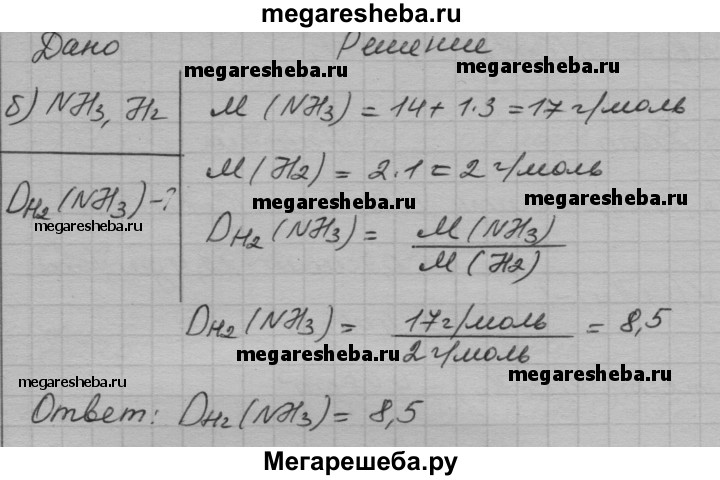 megaresheba.ru
Дано Решение
megaresheba.ru megaresheba.ru
б) NH₃, H₂ M (NH₃) = 14 + 1·3 = 17 г/моль
M (H₂) = 2·1 = 2 г/моль
D_H₂ (NH₃) - ? megaresheba.ru megaresheba.ru
megaresheba.ru
D_H₂ (NH₃) = M (NH₃) / M (H₂)
D_H₂ (NH₃) = 17 г/моль / 2 г/моль = 8,5
megaresheba.ru megaresheba.ru
megaresheba.ru
Ответ: D_H₂ (NH₃) = 8,5
Мегарешеба.ру